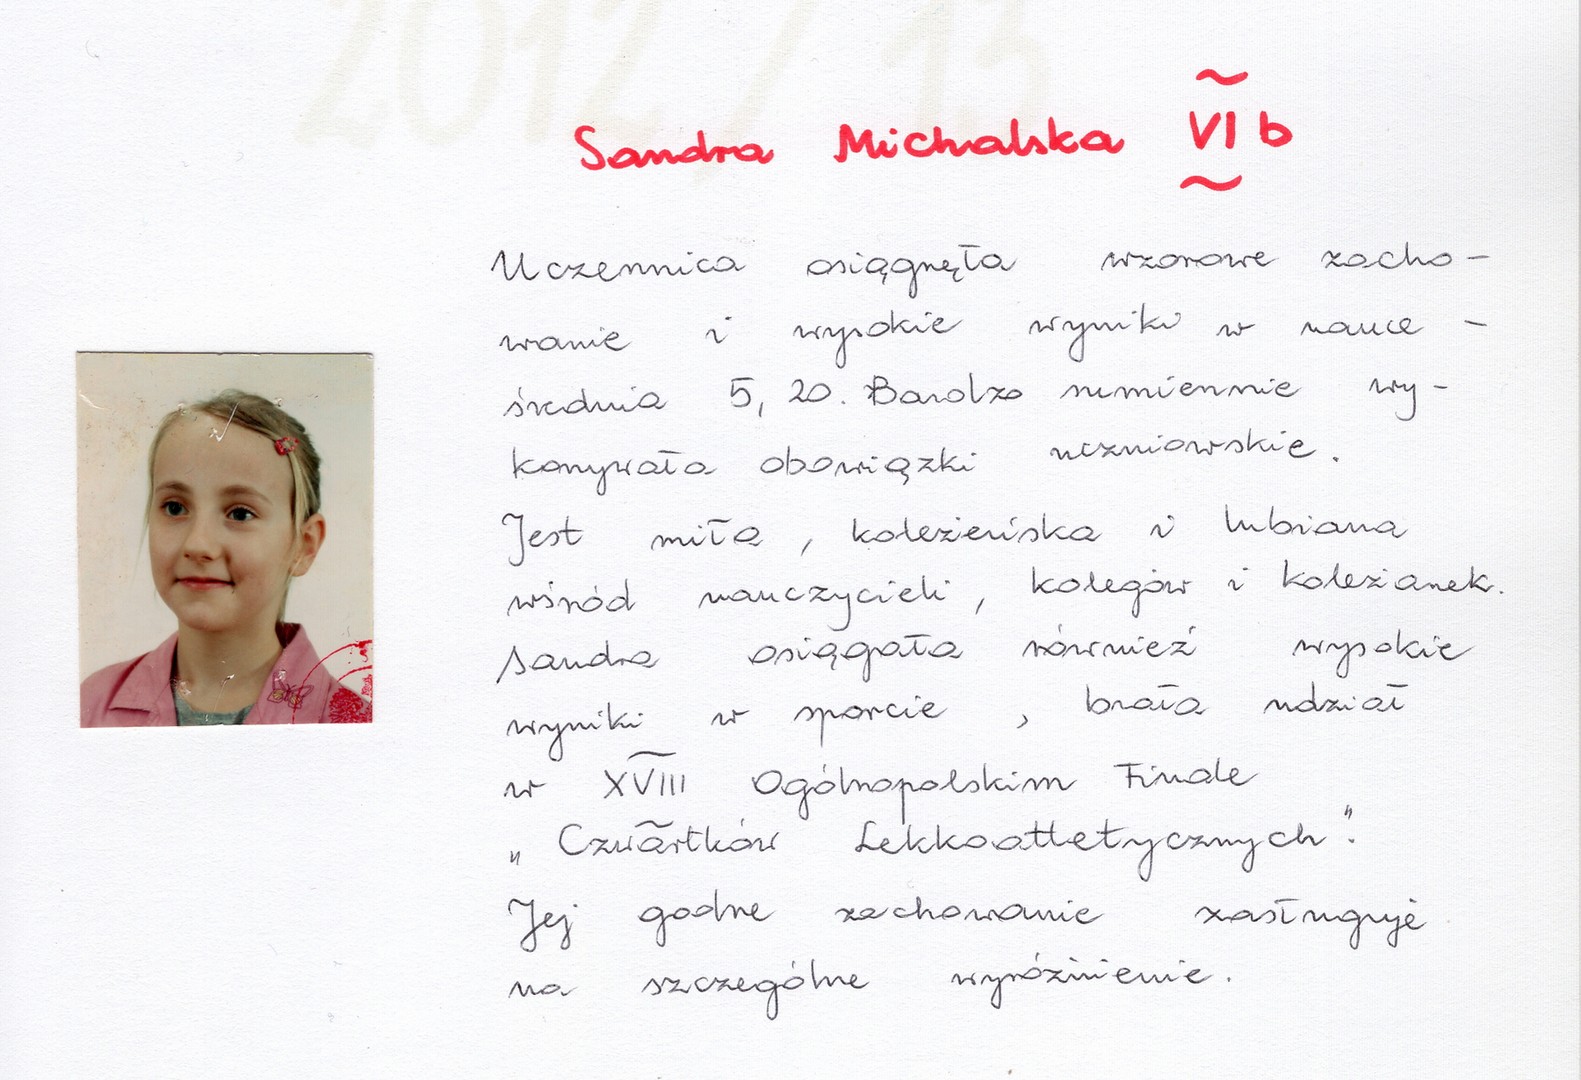 2012/13
Sandra Michalska VI b
Uczennica osiągnęła wzorowe zacho-
wanie i wysokie wyniki w nauce -
średnia 5,20. Bardzo sumiennie wy-
konywała obowiązki uczniowskie.
Jest miła, koleżeńska i lubiana
wśród nauczycieli, kolegów i koleżanek.
Sandra osiągała również wysokie
wyniki w sporcie, brała udział
w XVIII Ogólnopolskim Finale
„Czwartków Lekkoatletycznych".
Jej godne zachowanie zasługuje
na szczególne wyróżnienie.